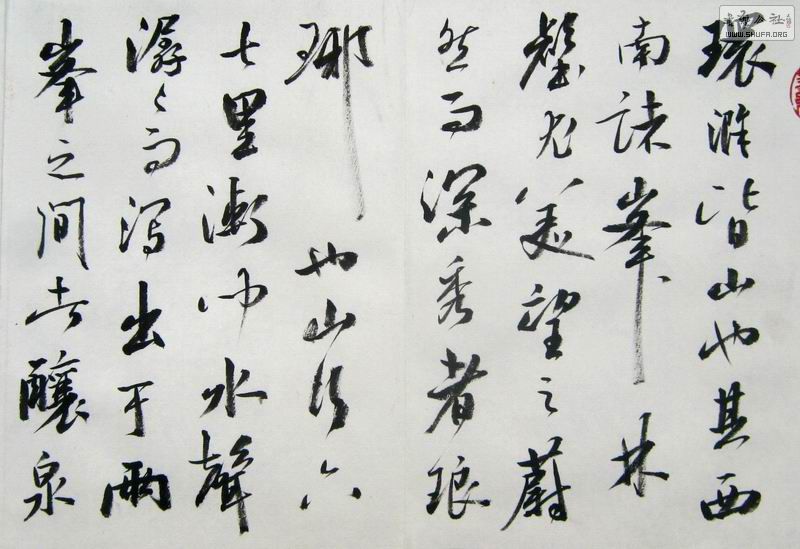 環滁皆山也其西
南諸峯林
壑尤美望之蔚
然而深秀者琅
琊也山行六
七里漸聞水聲
潺々而瀉出于兩
峯之間者釀泉
WWW.SHUFA.ORG